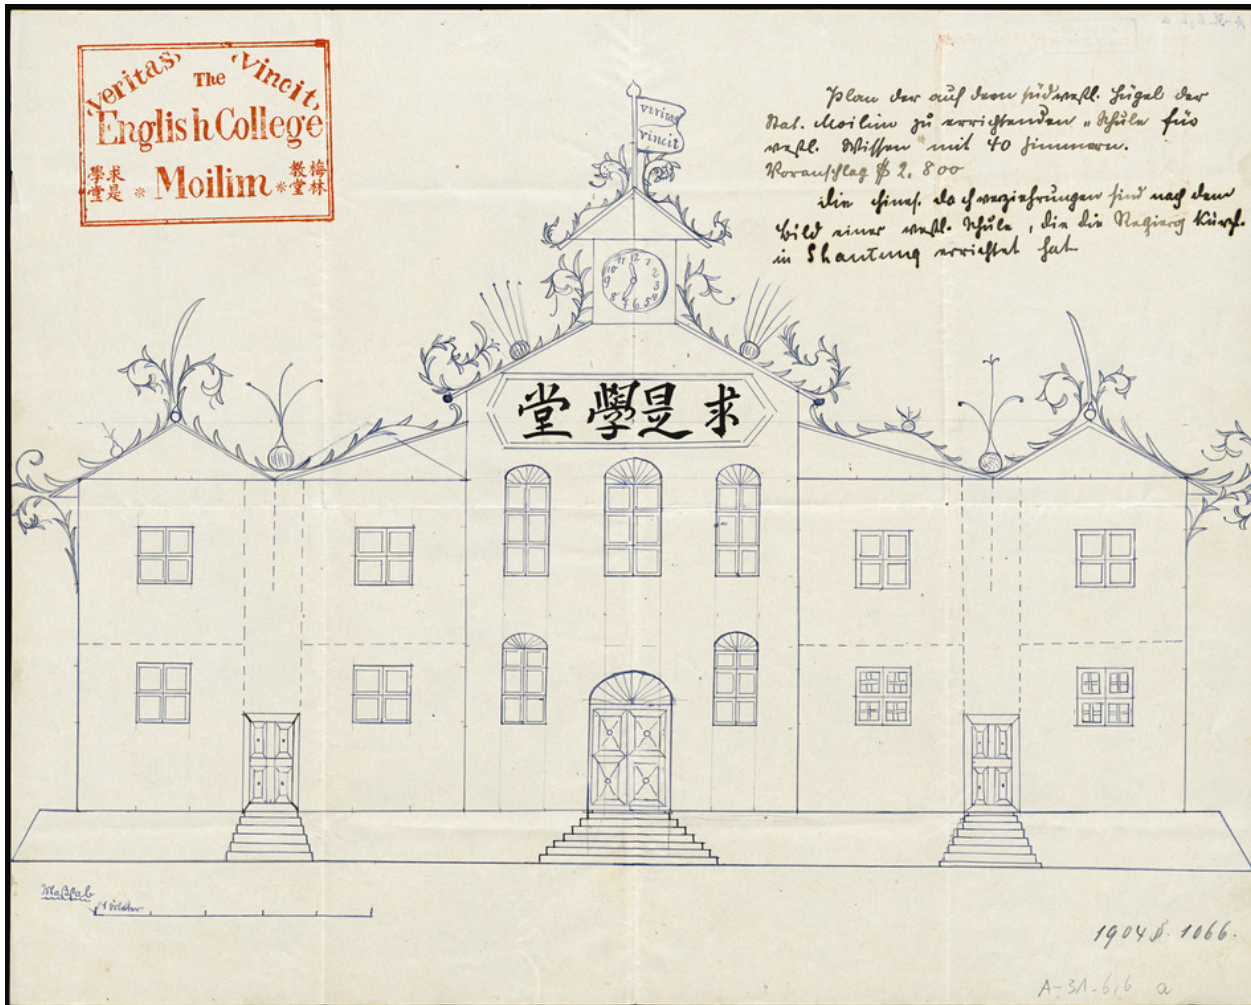 Veritas Vincit
The
English College
* Moilim *
求是學堂
梅林教堂
veritas
vincit
Plan der auf dem südwestl. Hügel der
Stat. Moilim zu errichtenden „Schule für
westl. Wissen mit 40 Zimmern.
Voranschlag $ 2.800
die chines. dachverziehrungen sind nach dem
bild einer westl. Schule, die die Regierg kürzl.
in Shantung errichtet hat
11 12 1 2 3 4 5 6 7 8 9 10
求是學堂
Maßstab
1904 S. 1066.
A-31.6,6 a